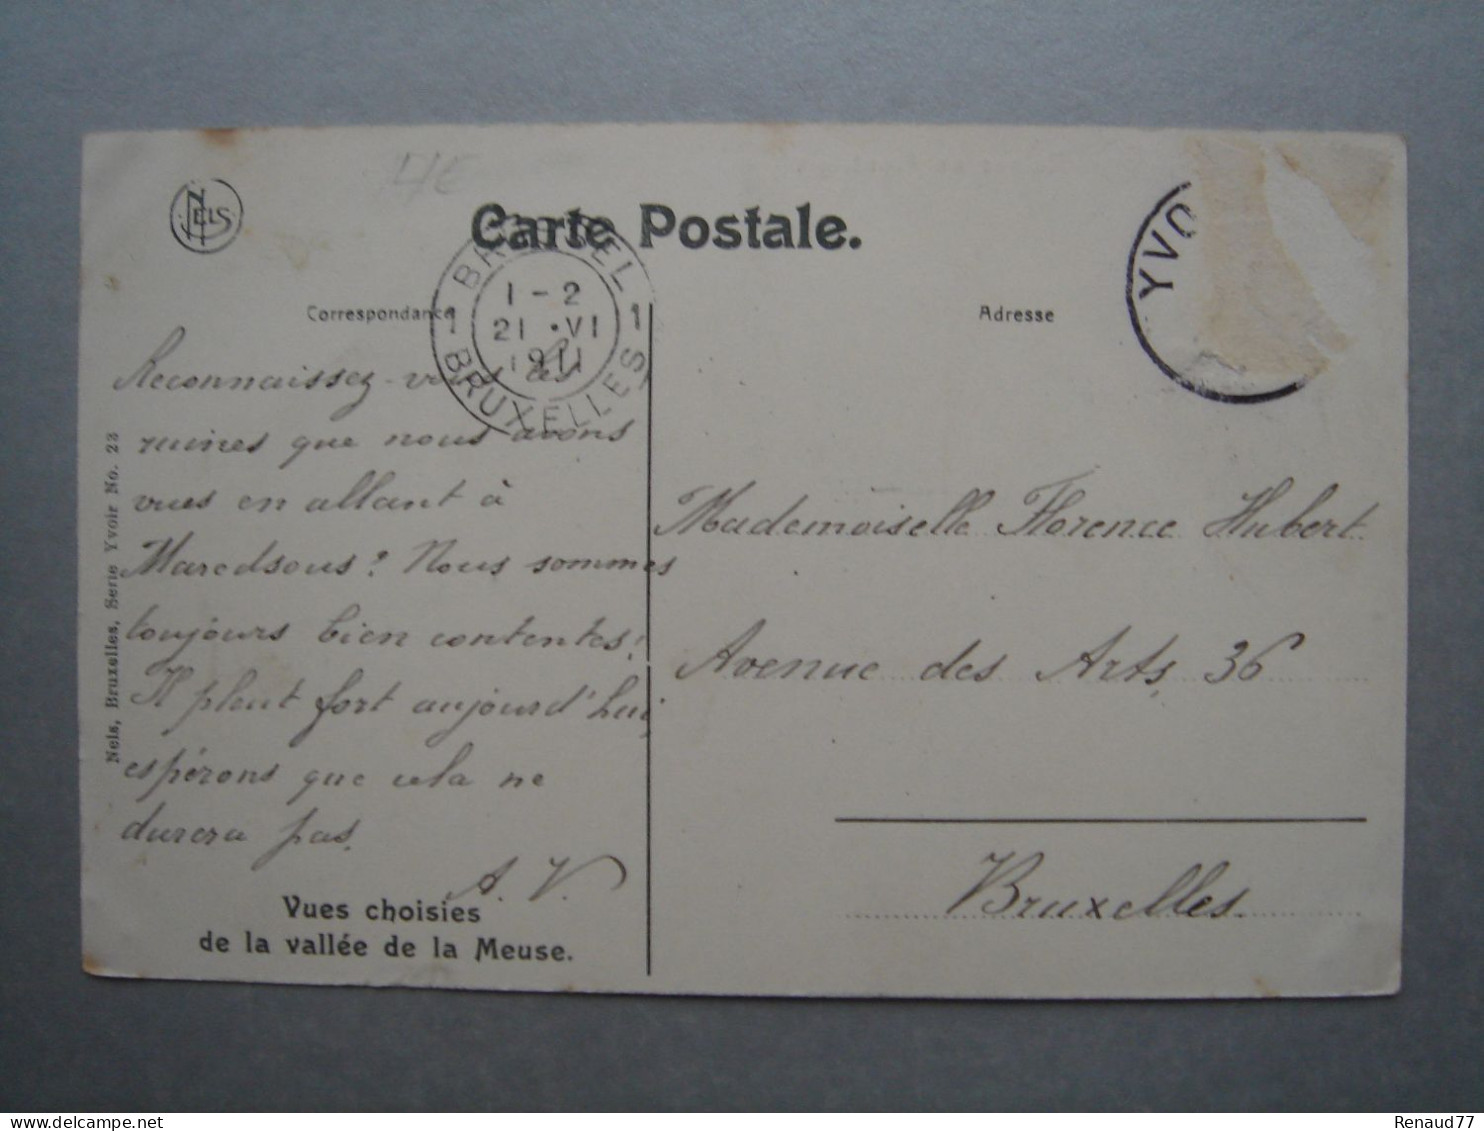 NELS
1/E
Carte Postale.
BRUSSEL
1-2
21 · VI
1911
1 BRUXELLES 1
YVO
Correspondance
Adresse
Reconnaissez-vous les
ruines que nous avons
vues en allant à
Maredsous? Nous sommes
toujours bien contentes!
Il pleut fort aujourd'hui,
espérons que cela ne
durera pas.
A. V.
Mademoiselle Florence Hubert
Avenue des Arts, 36
Bruxelles.
Nels, Bruxelles, Serie Yvoir No. 23
Vues choisies
de la vallée de la Meuse.
Renaud77